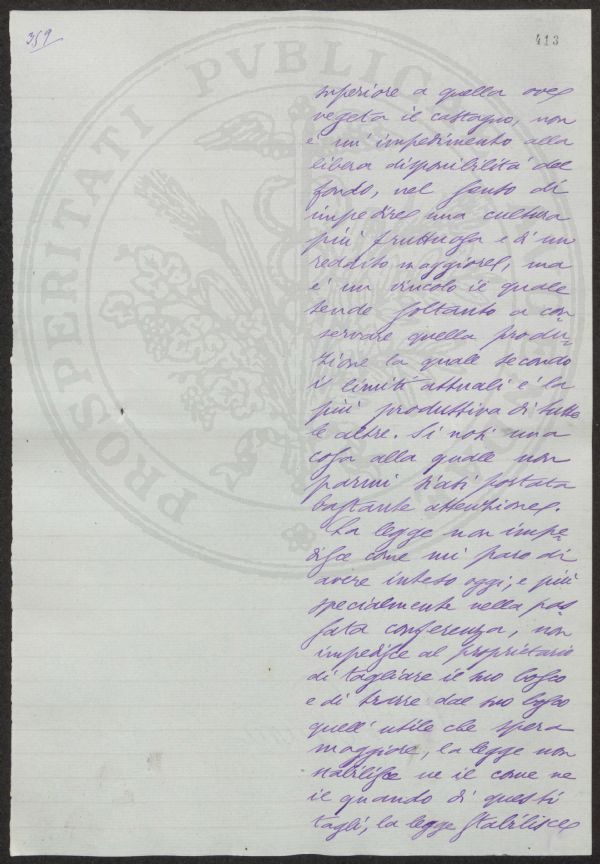 359
413
PROSPERITATI PVBLICAE
superiore a quella ove
vegeta il castagno, non
e' un' impedimento alla
libera disponibilitá del
fondo, nel senso di
impedire una cultura
piú fruttuosa e di un
reddito maggiore, ma
e' un vincolo il quale
tende soltanto a con-
servare quella produ-
zione la quale secondo
i limiti attuali e' la
piú produttiva di tutte
le altre. Si noti una
cosa alla quale non
parmi siasi portata
bastante attenzione.
La legge non impe-
disce come mi pare di
avere inteso oggi, e piú
specialmente nella pas-
sata conferenza, non
impedisce al proprietario
di tagliare il suo bosco
e di trarre dal suo bosco
quell' utile che spera
maggiore, la legge non
stabilisce ne il come ne
il quando di questi
tagli, la legge stabilisce